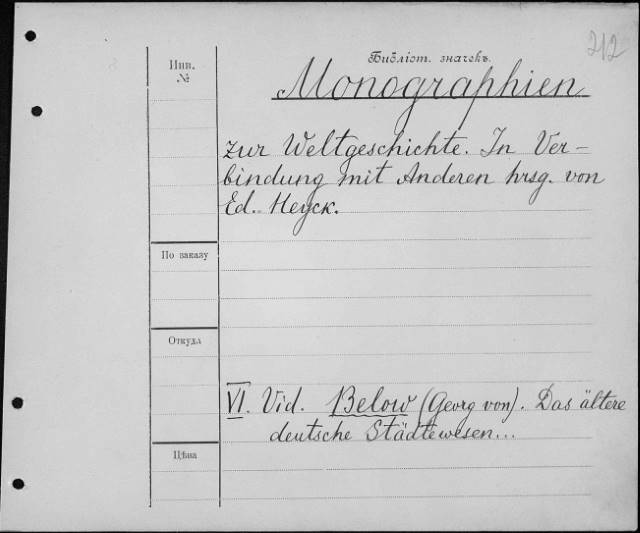 212
Библіот. значекъ.
Инв.
№
Monographien
zur Weltgeschichte. In Ver-
bindung mit Anderen hrsg. von
Ed. Heyck.
По заказу
Откуда
VI. Vid. Below (Georg von). Das ältere
deutsche Städtewesen...
Цѣна